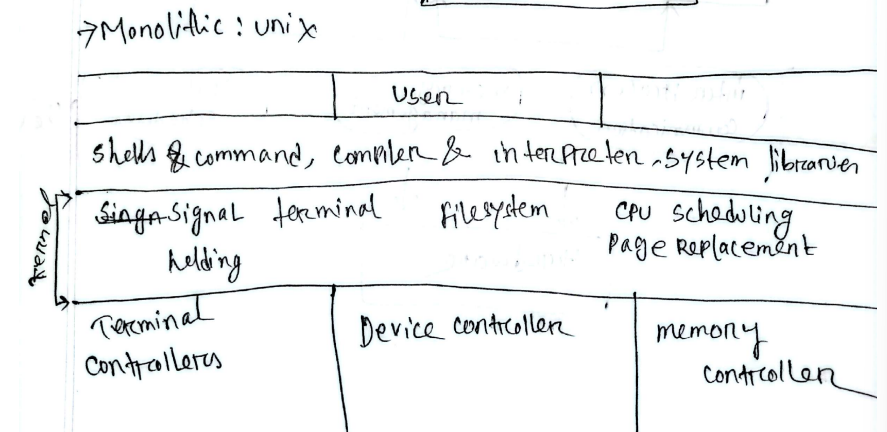 →Monolithic : unix
User
shells & command, compiler & interpreter, system libraries
kernel
Signal terminal filesystem CPU scheduling
helding Page Replacement
Terminal Device controller memory
controllers controller